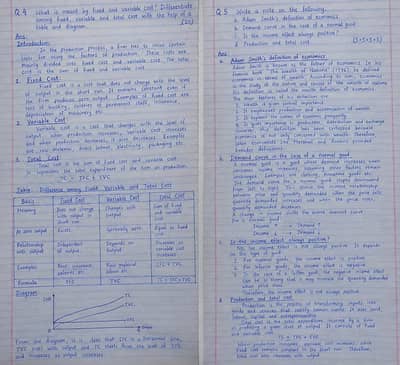 Q4 What is meant by fixed and variable cost? Differentiate
among fixed, variable and total cost with the help of a
table and diagram.
Ans.
Introduction:
In the production process, a firm has to incur certain
costs for using the factors of production. These costs are
mainly divided into fixed cost and variable cost. The total
cost is the sum of fixed and variable cost.
1. Fixed Cost
Fixed cost is a cost that does not change with the level
of output in the short run. It remains constant even if
the firm produces zero output. Examples of fixed cost are
rent of building, salaries of permanent staff, insurance,
depreciation of machinery etc.
2. Variable Cost
Variable cost is a cost that changes with the level of
output. When production increases, variable cost increases
and when production decreases, it also decreases. Examples
are raw material, direct labour, electricity, packaging etc.
3. Total Cost
Total cost is the sum of fixed cost and variable cost.
It represents the total expenditure of the firm on production.
TC = TFC + TVC
Table: Difference among Fixed, Variable and Total Cost
Basis Fixed Cost Variable Cost Total Cost
Meaning Does not change with output in short run Changes with output Sum of fixed and variable cost
At zero output Exists Equal to fixed cost
Relationship with output Independent of output Depends on output Increases as variable cost increases
Examples Rent, insurance, salaries etc. Raw material, labour etc. TFC + TVC
Formula TFC TVC TC = TFC + TVC
Diagram
Cost
TC
TVC
TFC
Output
From the diagram, it is clear that TFC is a horizontal line,
TVC rises with output and TC starts from the level of TFC
and increases as output increases.
Q5 Write a note on the following.
a. Adam Smith's definition of economics.
b. Demand curve in the case of a normal good
c. Is the income effect always positive?
d. Production and total cost
Ans.
a. Adam Smith's definition of economics:
Adam Smith is known as the father of economics. In his
famous book "The Wealth of Nations" (1776), he defined
economics as science of wealth. According to him, economics
is the study of the nature and causes of the wealth of nations.
His definition is called the wealth definition of economics.
The main features of his definition are:
1. Wealth is given central importance.
2. It emphasizes production and accumulation of wealth.
3. It explains the causes of economic prosperity.
However, this definition has been criticized because
economics is not only concerned with wealth. Therefore,
later economists like Marshall and Robbins provided
broader definitions.
b. Demand curve in the case of a normal good
A normal good is a good whose demand increases when
consumer income increases, assuming other factors remain
unchanged. Examples are clothing, branded goods etc.
The demand curve for a normal good slopes downward
from left to right. This shows the inverse relationship
between price and quantity demanded. When the price falls,
quantity demanded increases and when the price rises,
quantity demanded decreases.
A change in income shifts the entire demand curve
for a normal good.
Income ↑ → Demand ↑
Income ↓ → Demand ↓
c. Is the income effect always positive?
No, the income effect is not always positive. It depends
on the type of good.
• For normal goods, the income effect is positive.
• For inferior goods, the income effect is negative.
• In the case of a Giffen good, the negative income effect
Therefore, the income effect is not always positive.
d. Production and total cost
Production is the process of transforming inputs into
goods and services that satisfy human wants. It uses land,
labour, capital and entrepreneurship.
Total cost is the total expenditure incurred by a firm
in producing a given level of output. It consists of fixed
and variable cost.
TC = TFC + TVC
When production increases, variable cost increases, while
fixed cost remains constant in the short run. Therefore,
total cost also increases with output.